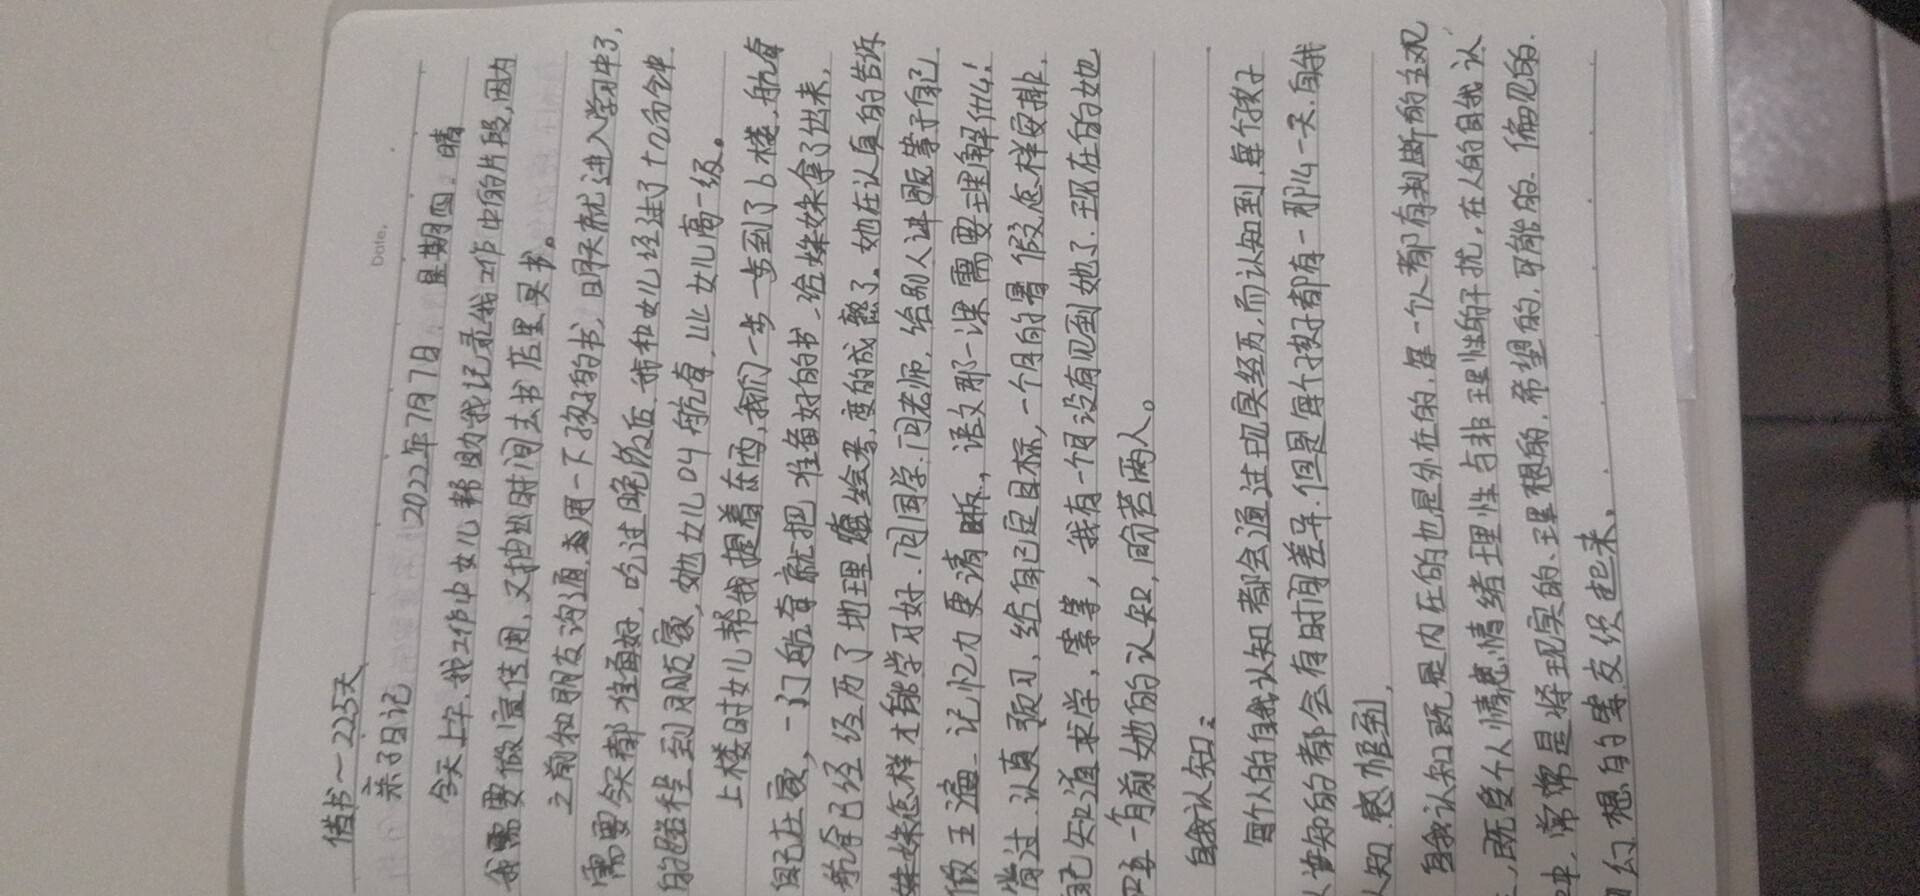 借书一225天
Date.
亲子日记 2022年7月7日 星期四. 晴
今天上午. 我工作中女儿帮助我记录我工作中的片段,因为
我需要做宣传用,又抽出时间去书店里买书。
之前和朋友沟通. 用一下孩子的书, 明天就进入学习中了,
需要今天都准备好, 吃过晚饭后 我和女儿经过了十几分钟
的路程到朋友家, 她女儿04航有, 女儿高一级。
上楼时女儿帮我提着东西,我们一步一步到了6楼,航有
自己在家, 一门航有就把准备好的书、给妹妹拿了出来,
航有已经经历了地理 会考, 变的成熟了。她在认真的告诉
妹妹怎样才能学习好. 问同学. 问老师, 给别人讲题等于自己
做五遍. 记忆力更清晰, 语文那一课需要理解什么!
背过. 认真预习、给自己定目标, 一个月的暑假怎样安排.
自己知道求学, 等等, 我有一个月没有见到她了. 现在的她
和一月前她的认知, 同若两人。
自我认知:
每个人的自我认知都会通过切实经历, 而认知到, 每个孩子
认知的都会有时间差异. 但是每个孩子都有一那么一天. 自我
认知. 感悟到,
自我认知既是内在的也是外在的, 每一个人都有判断的主观
, 既受个人情感情绪理性与非理性的干扰, 在人的自我认
中, 常常是将现实的、理想的, 希望的, 可能的. 偏见的.
幻想的等交织起来,